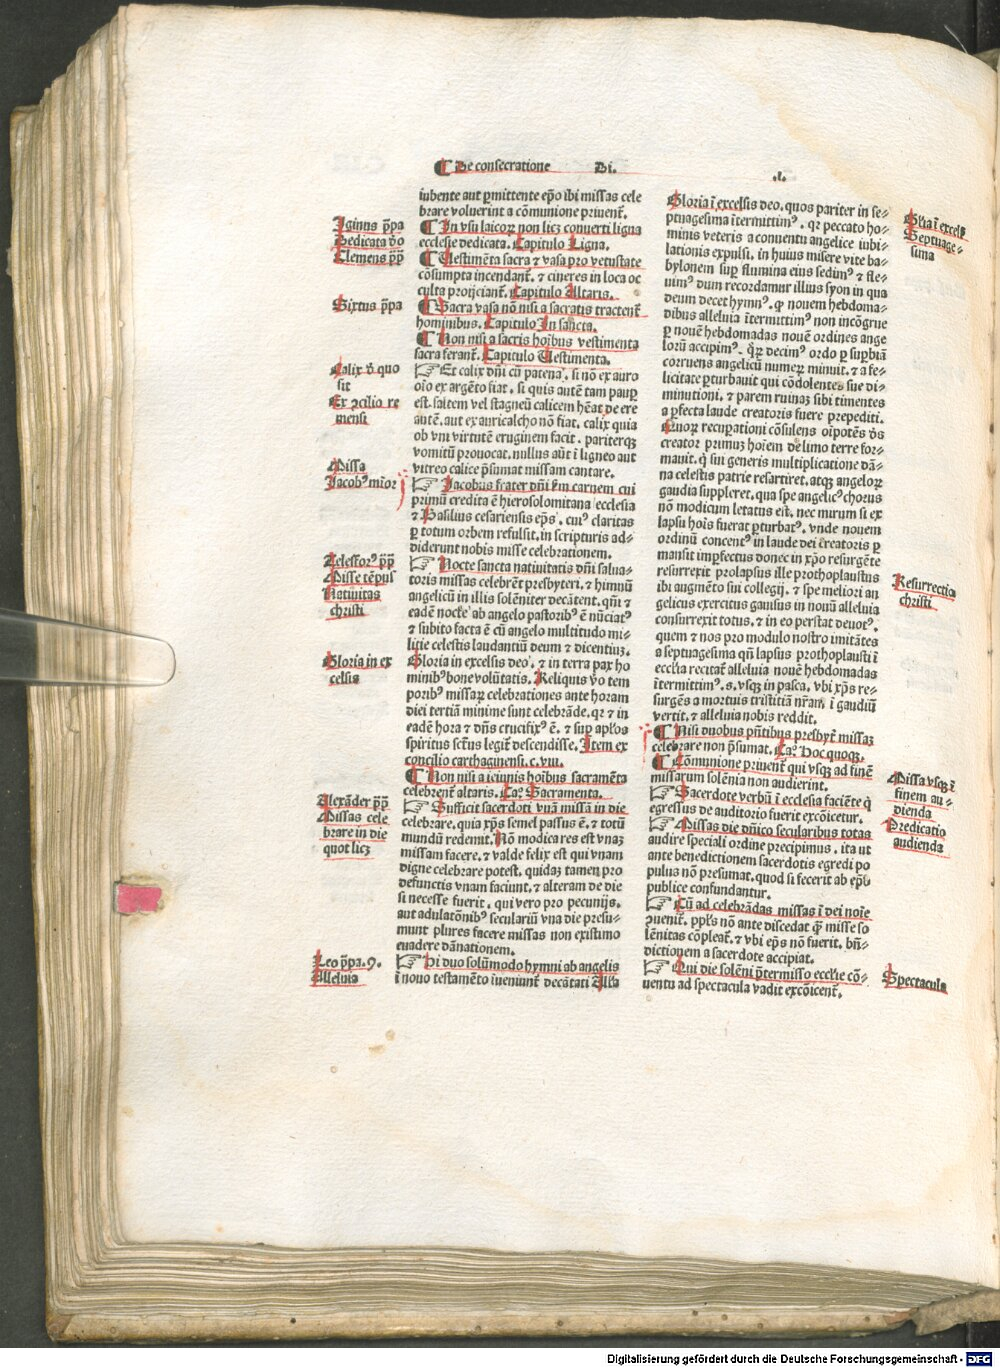 ¶ De consecratione Di. .I.
iubente aut ꝑmittente ep̄o ibi missas cele
brare voluerint a cōmunione priuent᷑.
¶ In vsu laicoꝝ non licꝫ conuerti ligna
ecclesie dedicata. Capitulo Ligna.
¶ Vestimēta sacra ⁊ vasa pro vetustate
cōsumpta incendant᷑. ⁊ cineres in loca oc
culta proijciant᷑. Capitulo Altaris.
¶ Sacra vasa nō nisi a sacratis tractent᷑
hominibus. Capitulo In sancta.
¶ Non nisi a sacris hoībus vestimenta
sacra ferant᷑. Capitulo Vestimenta.
☞ Et calix dn̄i cū patena. si nō ex auro
oīo ex argēto fiat. si quis autē tam pauꝑ
est. saltem vel stagneū calicem hēat de ere
autē. aut ex auricalcho nō fiat. calix quia
ob vni virtutē eruginem facit. pariterqꝫ
vomitū prouocat. nullus aūt ī ligneo aut
vitreo calice p̄sumat missam cantare.
☞ Jacobus frater dn̄i ẜm carnem cui
primū credita ē hierosolomitana ecclesia
⁊ Basilius cesariensis ep̄s. cuiꝰ claritas
ꝑ totum orbem refulsit. in scripturis ad⸗
diderunt nobis misse celebrationem.
☞ Nocte sancta natiuitatis dn̄i salua⸗
toris missas celebrēt presbyteri. ⁊ himnū
angelicū in illis solēniter decātent. qm̄ ⁊
eadē nocte ab angelo pastoribꝰ ē nūciatꝰ
⁊ subito facta ē cū angelo multitudo mi⸗
litie celestis laudantiū deum ⁊ dicentiuꝫ.
Gloria in excelsis deo. ⁊ in terra pax ho
minibꝰ bone volūtatis. Reliquis v̄o tem
poribꝰ missaꝝ celebrationes ante horam
diei tertiā minime sunt celebrāde. qꝛ ⁊ in
eadē hora ⁊ dn̄s crucifixꝰ ē. ⁊ sup ap̄los
spiritus sct̄us legit᷑ descendisse. Item ex
concilio carthaginensi. c. viii.
¶ Non nisi a ieiunis hoībus sacramēta
celebrent᷑ altaris. Caꝫ. Sacramenta.
☞ Sufficit sacerdoti vnā missā in die
celebrare. quia xp̄s semel passus ē. ⁊ totū
mundū redemit. Nō modica res est vnaꝫ
missam facere. ⁊ valde felix est qui vnam
digne celebrare potest. quidaꝫ tamen pro
defunctis vnam faciunt. ⁊ alteram de die
si necesse fuerit. qui vero pro pecunijs.
aut adulatōnibꝰ seculariū vna die presu⸗
munt plures facere missas non existimo
euadere dānationem.
☞ Hi duo solūmodo hymni ab angelis
ī nouo testamēto īueniunt᷑ decātati Alla
Gloria ī excelsis deo. quos pariter in se⸗
ptuagesima ītermittimꝰ. qꝛ peccato ho⸗
minus veteris a conuentu angelice iubi⸗
lationis expulsi. in huius misere vite ba⸗
bylonem suꝑ flumina eius sedimꝰ ⁊ fle⸗
uimꝰ dum recordamur illius syon in qua
deum decet hymnꝰ. ꝙ nouem hebdoma⸗
dibus alleluia ītermittimꝰ non incōgrue
ꝑ nouē hebdomadas nouē ordines ange
lorū accipimꝰ. q̄ꝝ decimꝰ ordo ꝑ suꝑbiā
corruens angelicū numeꝝ minuit. ⁊ a fe⸗
licitate ꝑturbauit qui cōdolentes sue di⸗
minutioni. ⁊ parem ruinaꝫ sibi timentes
a ꝑfecta laude creatoris fuere prepediti.
Quoꝝ recuꝑationi cōsulens oīpotēs dꝰs
creator primus hoīem de limo terre for⸗
mauit. q̇ sui generis multiplicatione dā⸗
na celestis patrie resartiret. atqꝫ angeloꝝ
gaudia suppleret. qua spe angelicꝰ chorus
nō modicum letatus est. nec mirum si ex
lapsu hoīs fuerat ꝑturbatꝰ. vnde nouem
ordinū concentꝰ in laude dei creatoris ꝑ
mansit imꝑfectus donec in xp̄o resurgēte
resurrexit prolapsus ille prothoplaustus
ibi augmēto sui collegij. ⁊ spe meliori an
gelicus exercitus gauisus in nouū alleluia
consurrexit totus. ⁊ in eo perstat deuotꝰ.
quem ⁊ nos pro modulo nostro imitātes
a septuagesima qn̄ lapsus prothoplausti ī
eccl̄ia recitat᷑ alleluia nouē hebdomadas
ītermittimꝰ. s. vsqꝫ in pasca. vbi xp̄s re⸗
surgēs a mortuis tristitiā nr̄am ī gaudiū
vertit. ⁊ alleluia nobis reddit.
¶ Nisi duobus pn̄tibus presbyt᷑ missaꝫ
celebrare non p̄sumat. Caꝫ. Hoc quoqꝫ.
¶ Cōmunione priuent᷑ qui vsqꝫ ad finē
missarum solēnia non audierint.
☞ Sacerdote verbū ī ecclesia faciēte q̇
egressus de auditorio fuerit excōicetur.
☞ Missas die dn̄ico secularibus totas
audire speciali ordine precipimus. ita ut
ante benedictionem sacerdotis egredi po
pulus nō presumat. quod si fecerit ab ep̄o
publice confundantur.
☞ Cū ad celebrādas missas ī dei noīe
ꝯuenit᷑. ppl̄s nō ante discedat q̄ꝫ misse so
lēnitas cōpleat᷑. ⁊ vbi ep̄s nō fuerit. bn̄⸗
dictionem a sacerdote accipiat.
☞ Qui die solēni p̄termisso eccl̄ie cō⸗
uentu ad spectacula vadit excōicent᷑.
Iginus pp̄a
Dedicata v̄o
Clemens pp̄
Sixtus pp̄a
Calix d̄ quo
sit
Ex ꝯcilio re
mensi
Missa
Jacobꝰ mīor
Telesforꝰ pp̄
Misse tēpus
Natiuitas
christi
Gloria in ex
celsis
Alexāder pp̄
Missas cele
brare in die
quot licꝫ
Leo pp̄a. 9.
Alleluia
Gl̄ia ī excels̄
Septuage⸗
sima
Resurrectio
christi
Missa vsqꝫ ī
finem au⸗
dienda
Predicatio
audienda
Spectacula
Digitalisierung gefördert durch die Deutsche Forschungsgemeinschaft - DFG